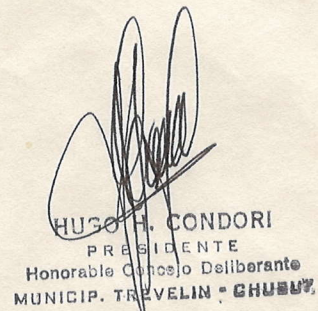 HUGO H. CONDORI
PRESIDENTE
Honorable Concejo Deliberante
MUNICIP. TREVELIN - CHUBUT